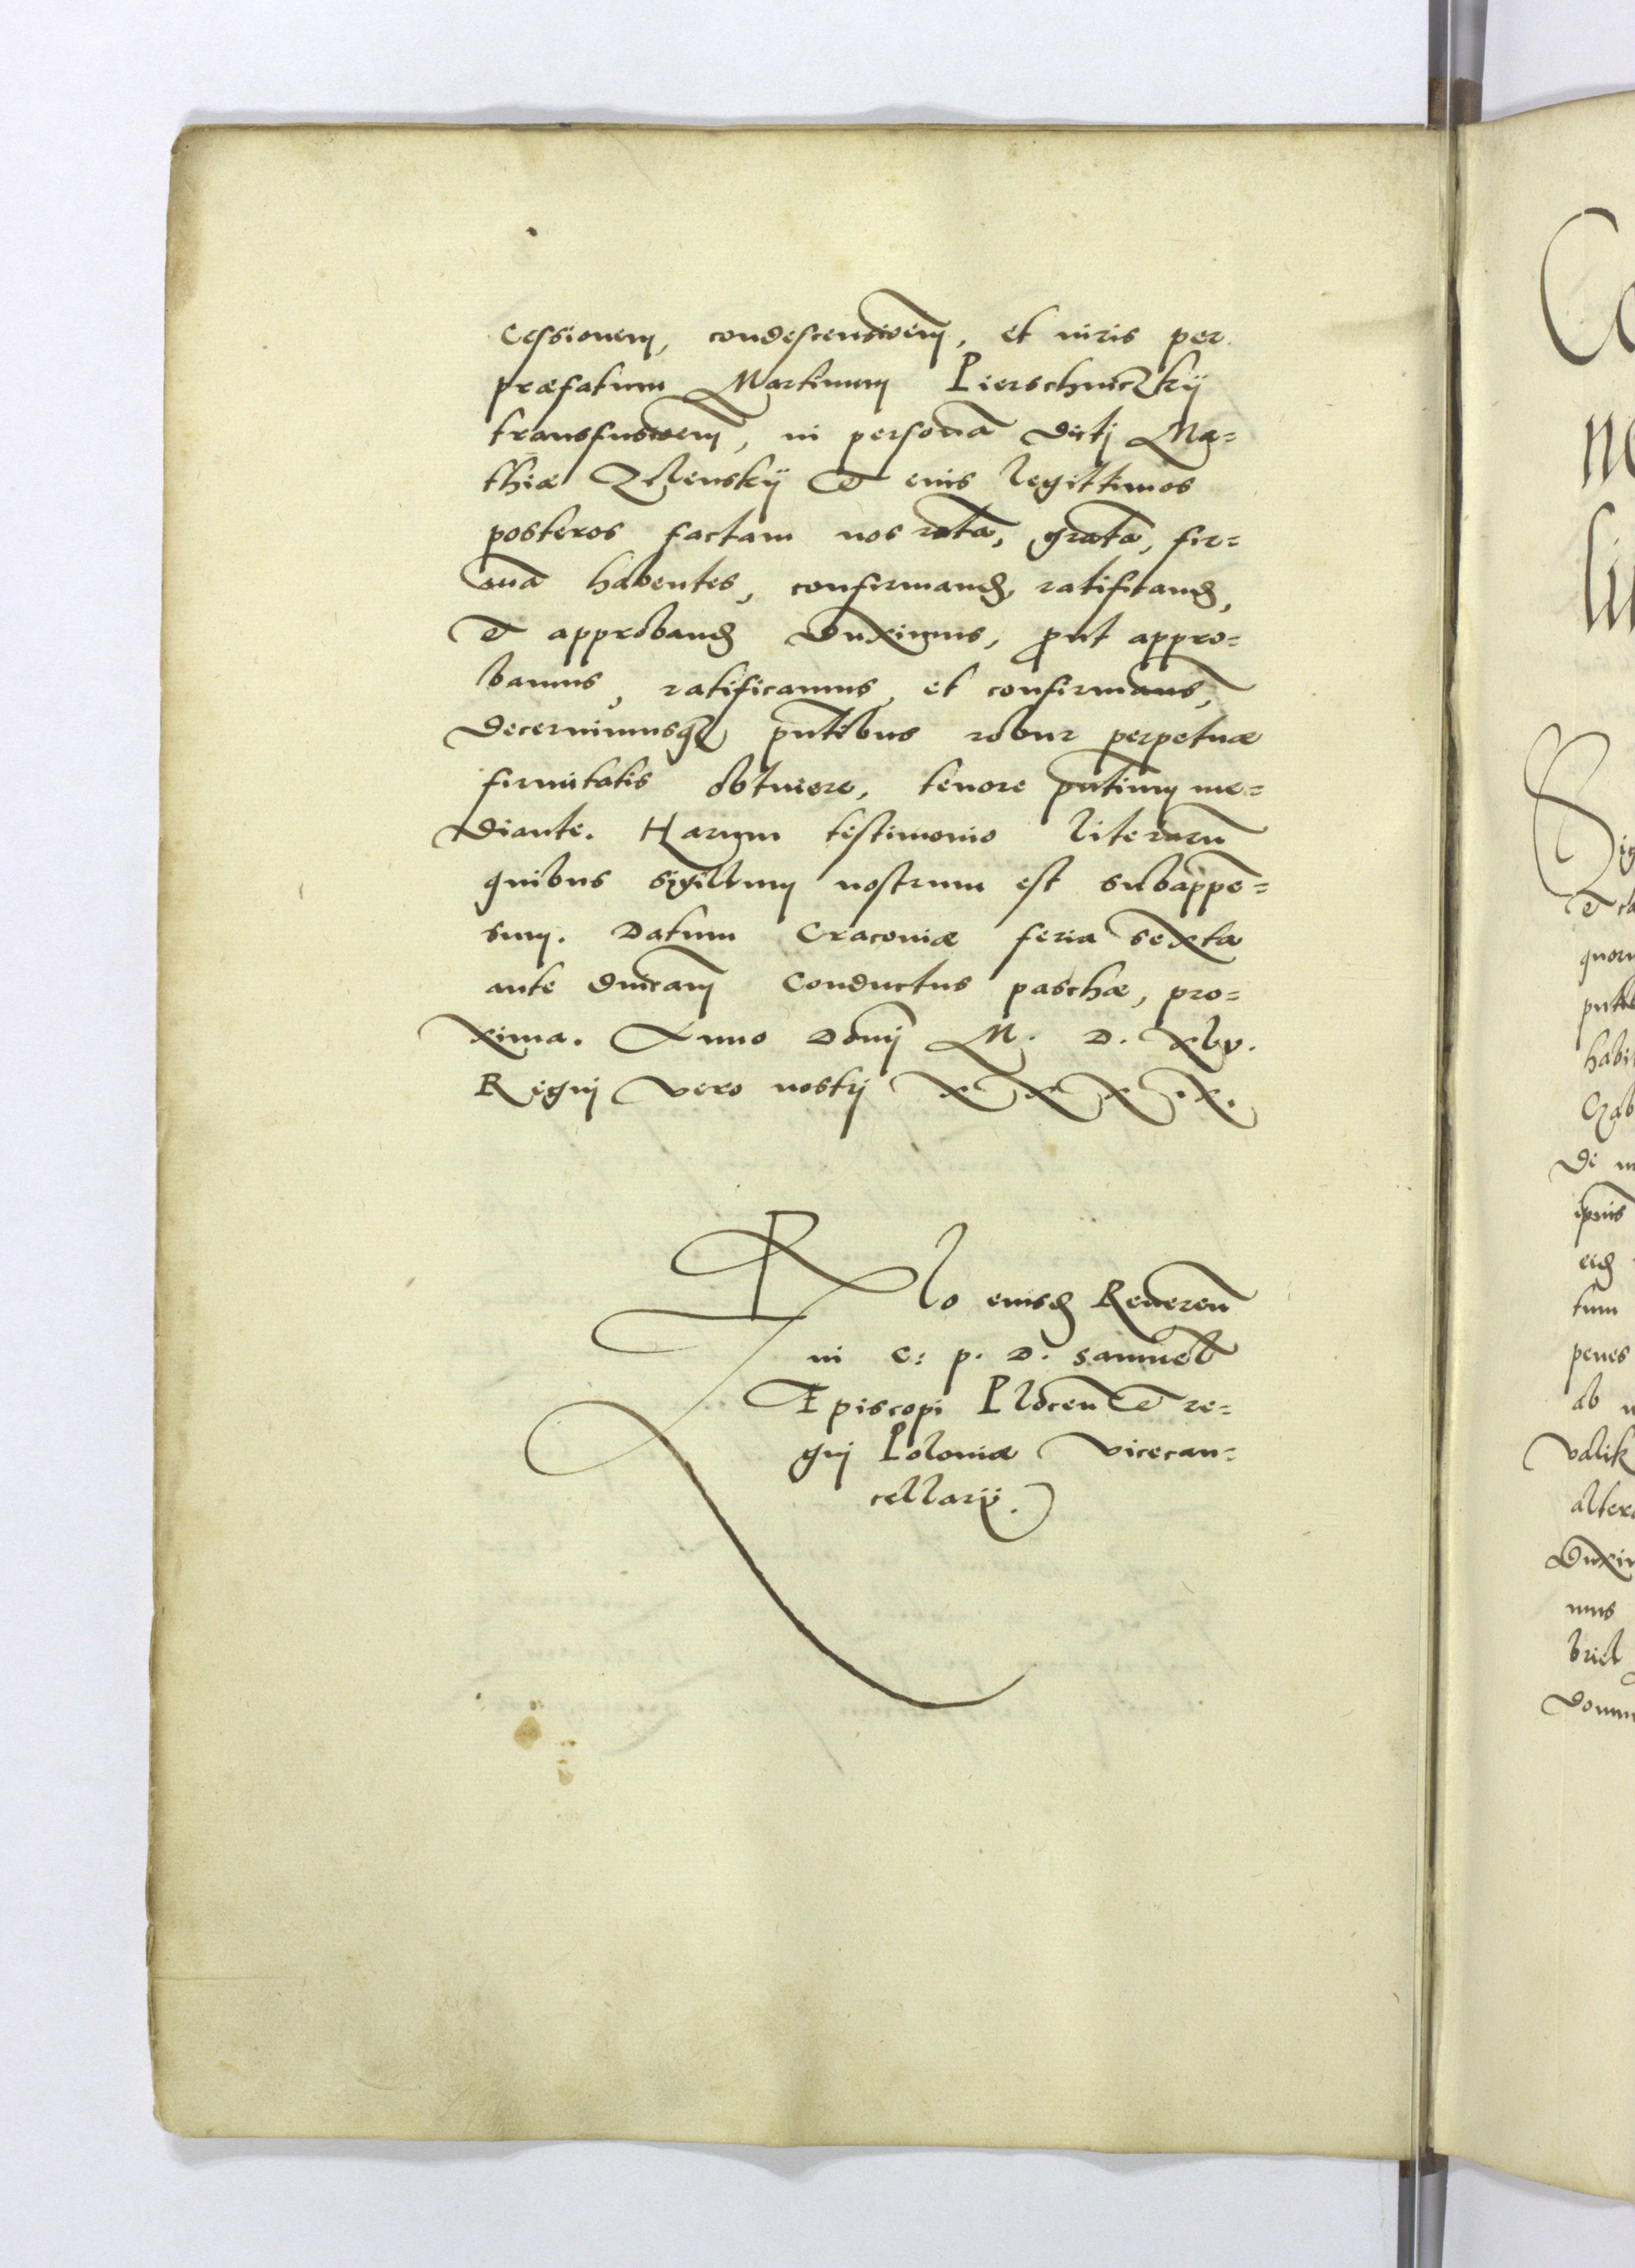 Cessionem, condescensioem, et iuris per
præfatum Martinum Pierschniczkÿ
transfusioem, in personã dicti Ma=
thiæ Zelenskÿ et eius legittimos
posteros factam nos ratã, gratã, fir=
mã habentes, confirmand, ratificand,
et approband duximus, prout appro=
bamus, ratificamus, et confirmams,
decernimusq pntibus robur perpetuæ
firmitatis obtinere, tenore pntium me=
diante. Harum testimonio literarũ
quibus sigillum nostrum est subappe=
sum. Datum Cracoviæ feria sexta
ante dnicam Conductus paschæ, pro=
xima. Anno Domj M. D. xlv.
Regnj vero nostrj xxxix.
Rlo eiusd Reveren
in C: p. D. Samuel
Episcopi Plocen et re=
gnj Poloniæ vicecan=
cellarÿ.
Co
Sig
et ca
quoru
pntib
habi
Czab
de
ipsius
eid
tum
penes
ab
valit
alter
duxi
mus
briel
domi